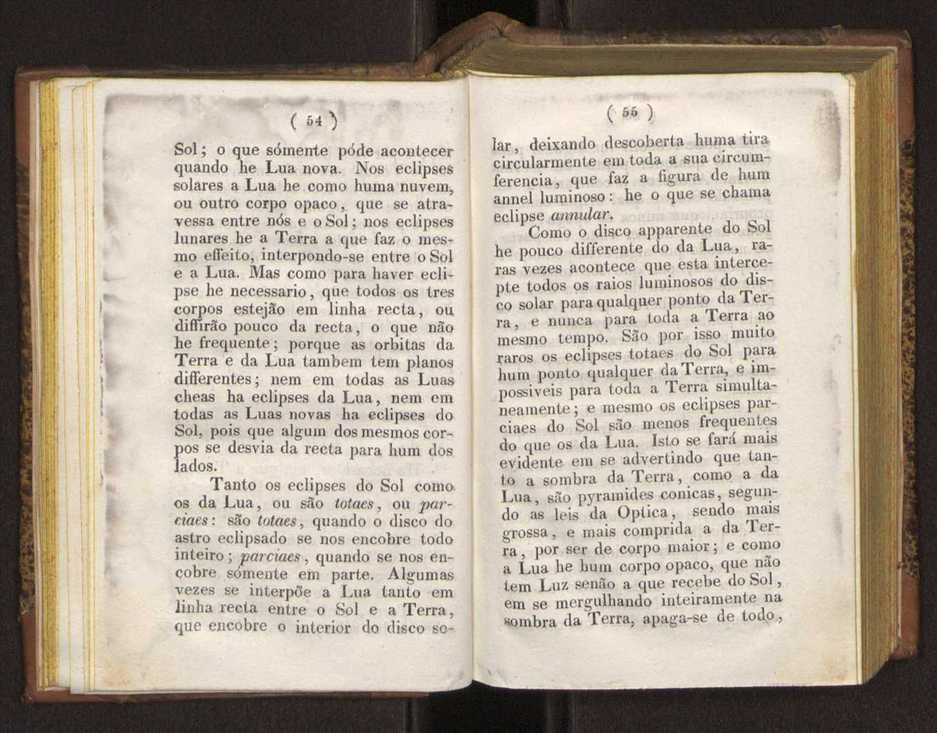 ( 54 )
Sol; o que sómente póde acontecer
quando he Lua nova. Nos eclipses
solares a Lua he como huma nuvem,
ou outro corpo opaco, que se atra-
vessa entre nós e o Sol; nos eclipses
lunares he a Terra a que faz o mes-
mo effeito, interpondo-se entre o Sol
e a Lua. Mas como para haver ecli-
pse he necessario, que todos os tres
corpos estejão em linha recta, ou
diffirão pouco da recta, o que não
he frequente; porque as orbitas da
Terra e da Lua tambem tem planos
differentes; nem em todas as Luas
cheas ha eclipses da Lua, nem em
todas as Luas novas ha eclipses do
Sol, pois que algum dos mesmos cor-
pos se desvia da recta para hum dos
lados.
Tanto os eclipses do Sol como
os da Lua, ou são totaes, ou par-
ciaes: são totaes, quando o disco do
astro eclipsado se nos encobre todo
inteiro; parciaes, quando se nos en-
cobre sómente em parte. Algumas
vezes se interpõe a Lua tanto em
linha recta entre o Sol e a Terra,
que encobre o interior do disco so-
( 55 )
lar, deixando descoberta huma tira
circularmente em toda a sua circum-
ferencia, que faz a figura de hum
annel luminoso: he o que se chama
eclipse annular.
Como o disco apparente do Sol
he pouco differente do da Lua, ra-
ras vezes acontece que esta interce-
pte todos os raios luminosos do dis-
co solar para qualquer ponto da Ter-
ra, e nunca para toda a Terra ao
mesmo tempo. São por isso muito
raros os eclipses totaes do Sol para
hum ponto qualquer da Terra, e im-
possiveis para toda a Terra simulta-
neamente; e mesmo os eclipses par-
ciaes do Sol são menos frequentes
do que os da Lua. Isto se fará mais
evidente em se advertindo que tan-
to a sombra da Terra, como a da
Lua, são pyramides conicas, segun-
do as leis da Optica, sendo mais
grossa, e mais comprida a da Ter-
ra, por ser de corpo maior; e como
a Lua he hum corpo opaco, que não
tem Luz senão a que recebe do Sol,
em se mergulhando inteiramente na
sombra da Terra, apaga-se de todo,